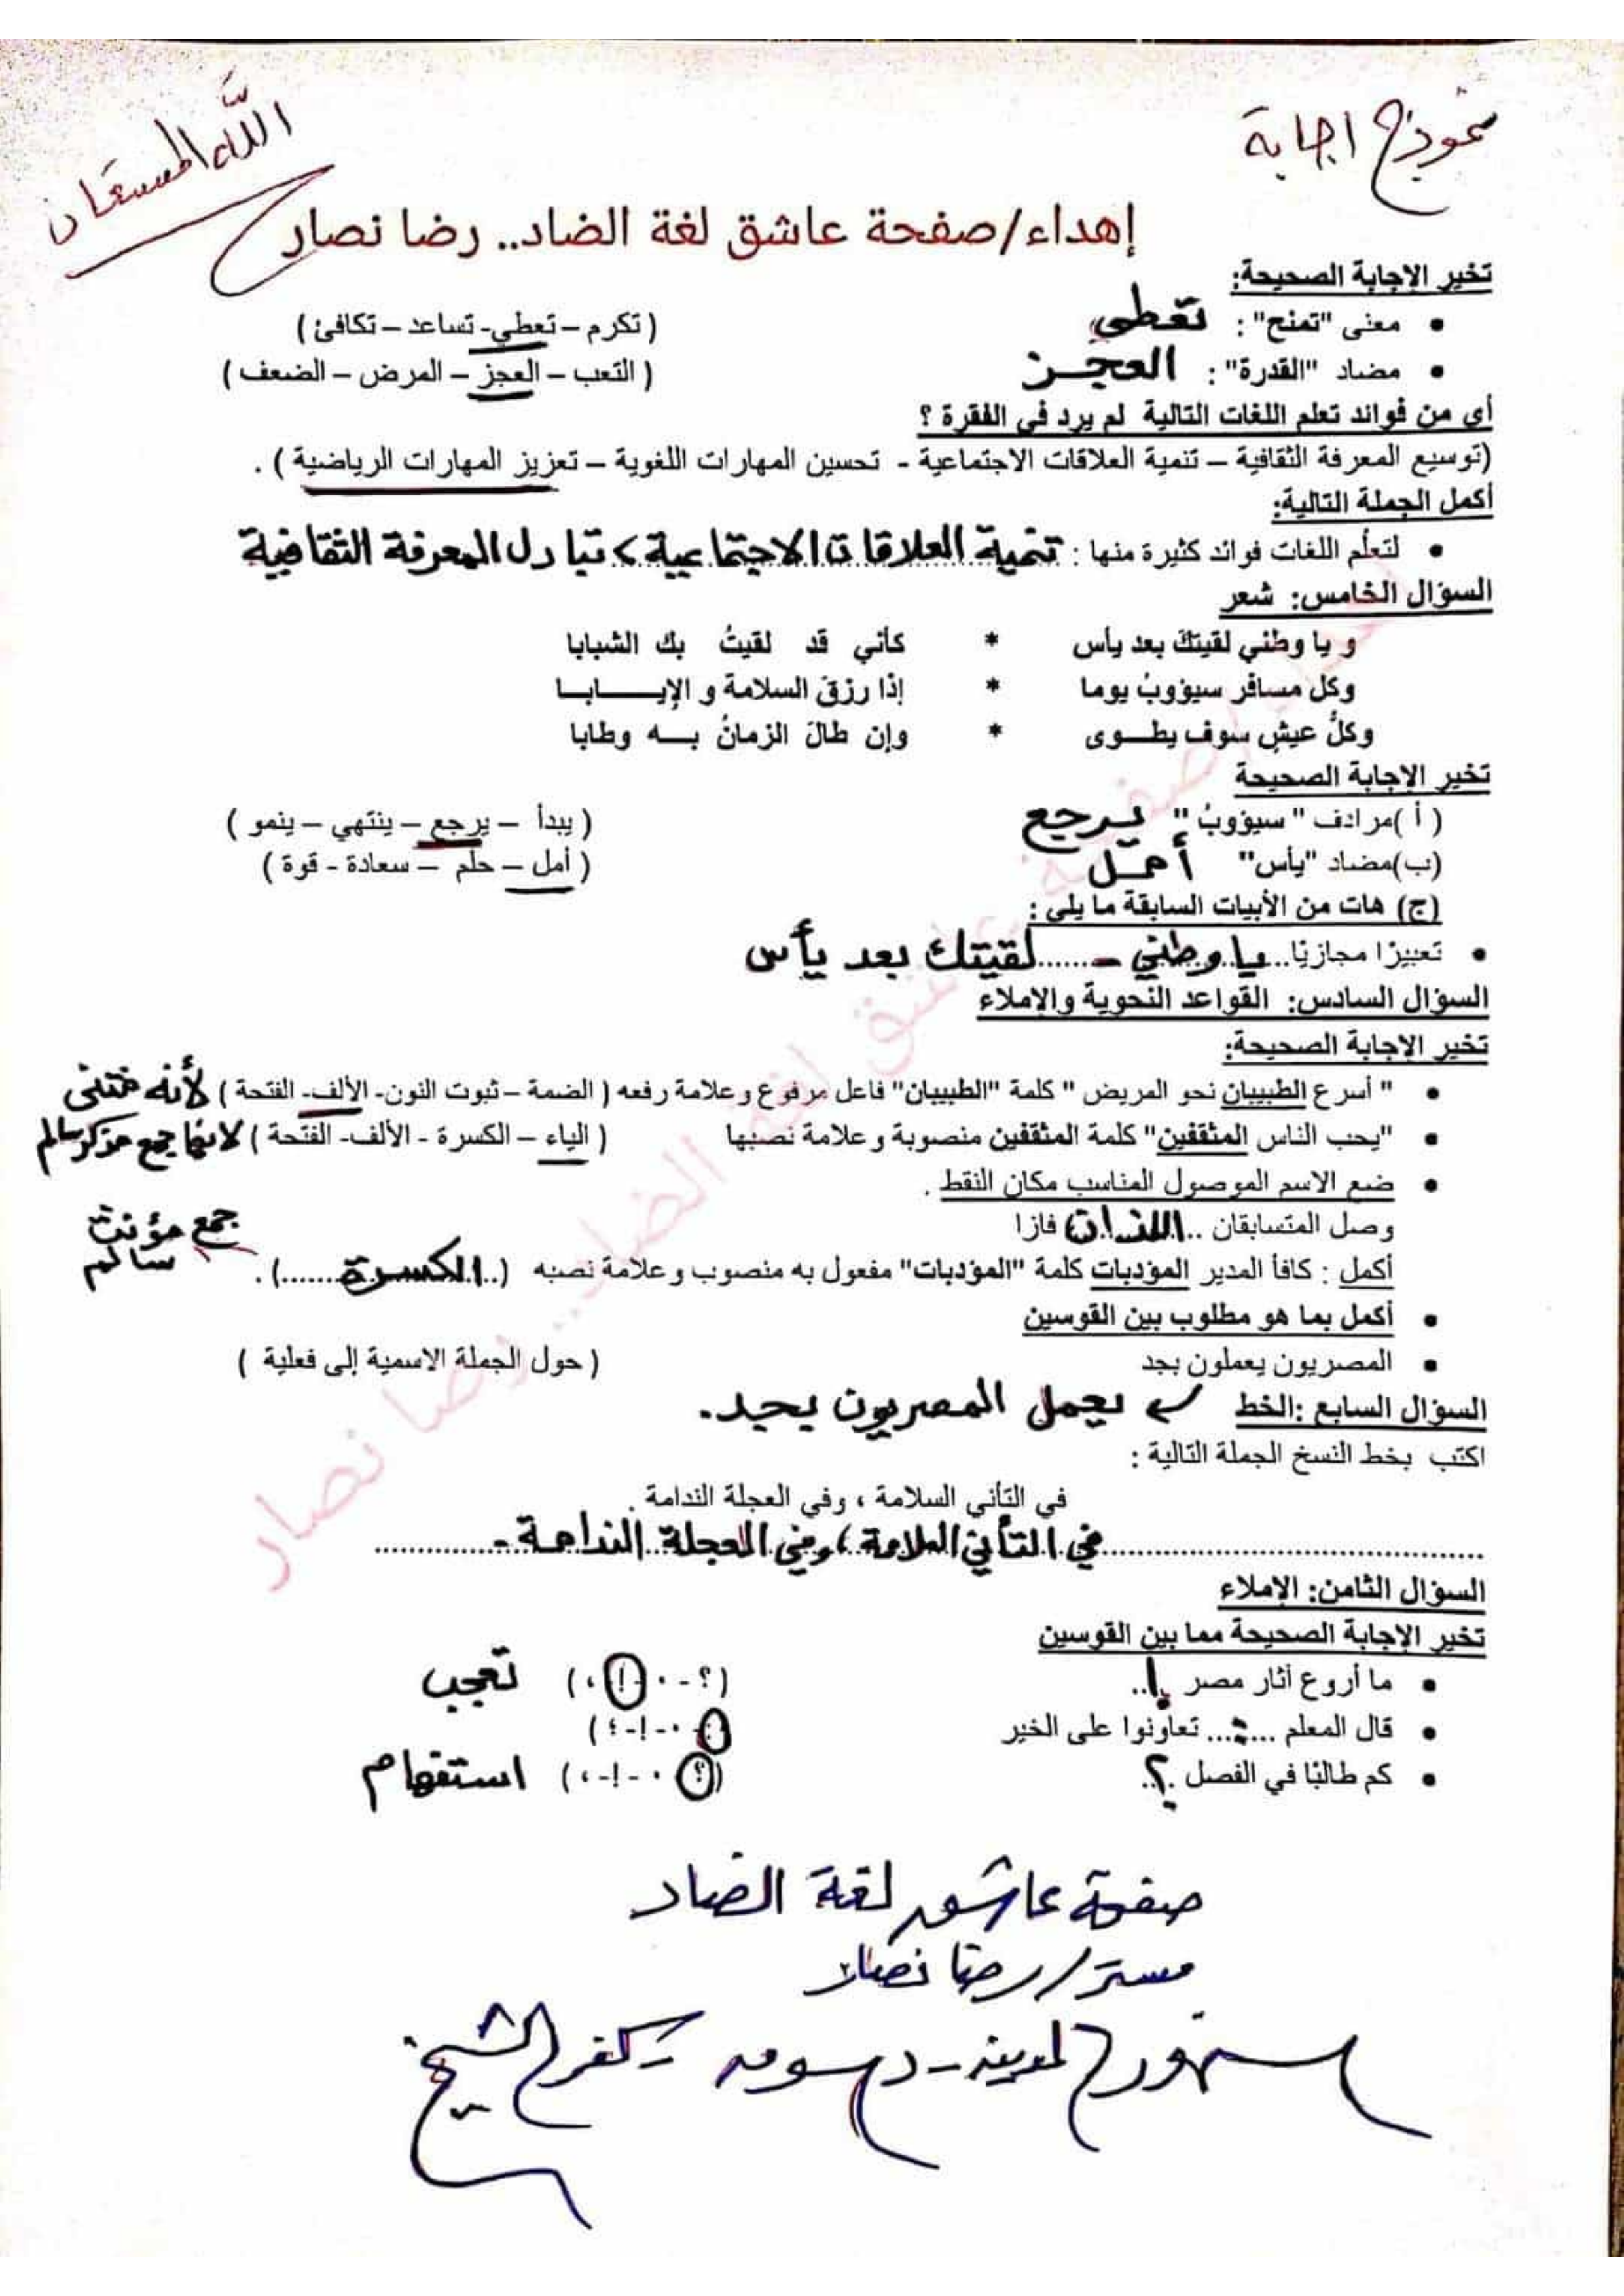 نموذج اجابة
الله المستعان
إهداء/صفحة عاشق لغة الضاد.. رضا نصار
تخير الإجابة الصحيحة:
• معنى "تمنح": تعطى ( تكرم – تعطي- تساعد – تكافئ )
• مضاد "القدرة": العجز ( التعب – العجز – المرض – الضعف )
أي من فوائد تعلم اللغات التالية لم يرد في الفقرة ؟
(توسيع المعرفة الثقافية – تنمية العلاقات الاجتماعية - تحسين المهارات اللغوية – تعزيز المهارات الرياضية ) .
أكمل الجملة التالية:
• لتعلُم اللغات فوائد كثيرة منها : تنمية العلاقات الاجتماعية > تبادل المعرفة الثقافية
السؤال الخامس: شعر
و يا وطني لقيتكَ بعد يأس * كأني قد لقيتُ بك الشبابا
وكل مسافر سيؤوبُ يوما * إذا رزقَ السلامة و الإيـــــابـــا
وكلُّ عيشٍ سوف يطـــوى * وإن طالَ الزمانُ بـــه وطابا
تخير الإجابة الصحيحة
( أ )مرادف " سيؤوبُ " يرجع ( يبدأ – يرجع – ينتهي – ينمو )
(ب)مضاد "يأس" أمل ( أمل – حلم – سعادة - قوة )
(ج) هات من الأبيات السابقة ما يلي :
• تعبيرًا مجازيًا..يا وطني - ......لقيتك بعد يأس
السؤال السادس: القواعد النحوية والإملاء
تخير الإجابة الصحيحة:
• " أسرع الطبيبان نحو المريض " كلمة "الطبيبان" فاعل مرفوع وعلامة رفعه ( الضمة – ثبوت النون- الألف- الفتحة ) لأنه مثنى
• "يحب الناس المثقفين" كلمة المثقفين منصوبة وعلامة نصبها ( الياء – الكسرة - الألف- الفتحة ) لانها جمع مذكر سالم
• ضع الاسم الموصول المناسب مكان النقط .
وصل المتسابقان ..اللذان فازا
أكمل : كافأ المدير المؤدبات كلمة "المؤدبات" مفعول به منصوب وعلامة نصبه (..الكسرة.......) . جمع مؤنث سالم
• أكمل بما هو مطلوب بين القوسين
• المصريون يعملون بجد ( حول الجملة الاسمية إلى فعلية )
السؤال السابع :الخط يعمل المصريون بجد.
اكتب بخط النسخ الجملة التالية :
في التأني السلامة ، وفي العجلة الندامة .
في التأني السلامة ، وفي العجلة الندامة .
السؤال الثامن: الإملاء
تخير الإجابة الصحيحة مما بين القوسين
• ما أروع أثار مصر !.. (؟ - . -!- ،) تعجب
• قال المعلم ...:... تعاونوا على الخير (: - . -!-؛ )
• كم طالبًا في الفصل .؟. (؟ - . -!- ،) استفهام
صفحة عاشق لغة الضاد
مستر/ رضا نصار
سنهور المدينة - دسوق - كفر الشيخ
إهداء/صفحة عاشق لغة الضاد.. رضا نصار